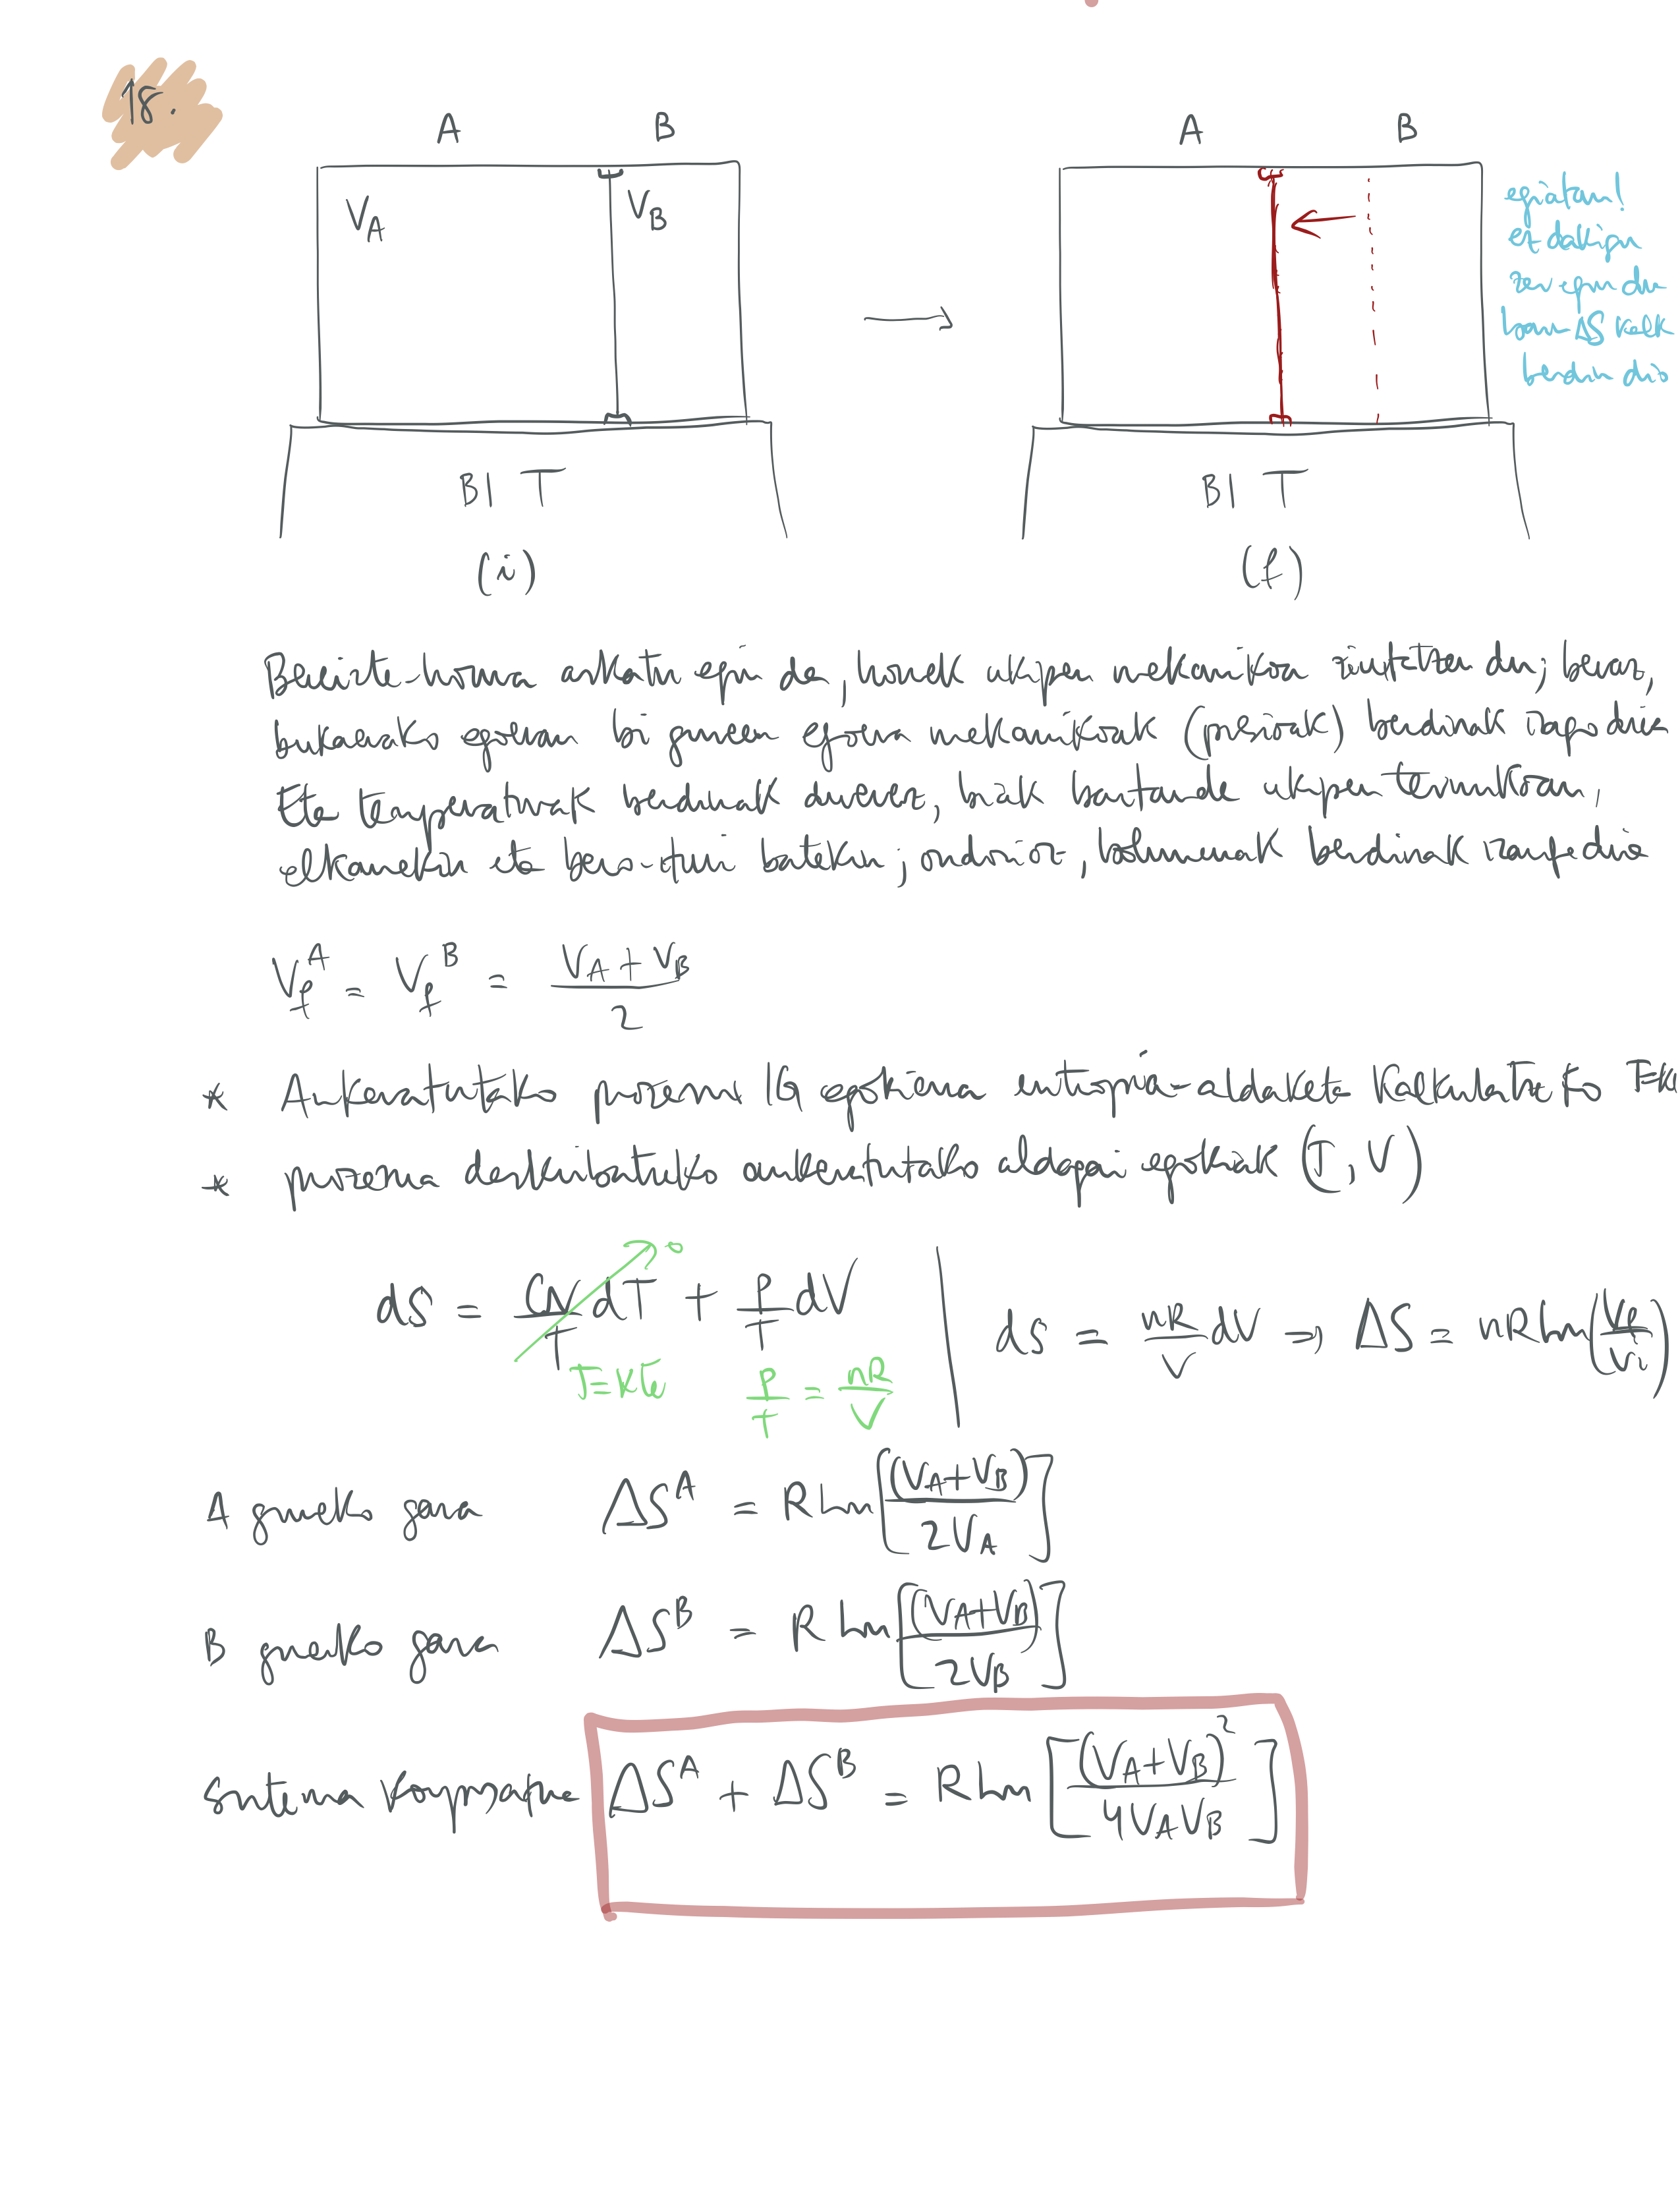 18.
A B
V_A V_B
A B
egiatan!
ez dakigu
zer egin du
baina ΔS kalk
berdin dio
BI T
BI T
(i)
(f)
Bereizte-horma askatu egin da, honek ukipen mekanikoa ziurtatzen du; beraz,
bukaerako egoeran bi guneen egoera mekanikoak (presioak) berdinak izango dira
Eta tenperaturak berdinak direnez, biak baitaude ukipen termikoan,
elkarrekin eta bero-iturri batekin; ondorioz, bolumenak berdinak izango dira
V_f^A = V_f^B = (V_A + V_B)/2
* Aukeratutako prozesu IG egokiena entropia-aldaketa kalkulatzeko T=kte
* prozesua deskribatzeko aukeratutako aldagai egokiak (T, V)
dS = C_V/T dT + P/T dV | dS = nR/V dV ⇒ ΔS = nR Ln(V_f/V_i)
0
T=kte P/T = nR/V
A guneko gasa ΔS^A = R Ln[(V_A+V_B)/2V_A]
B guneko gasa ΔS^B = R Ln[(V_A+V_B)/2V_B]
sistema konposatua ΔS^A + ΔS^B = R Ln[(V_A+V_B)^2/4V_AV_B]